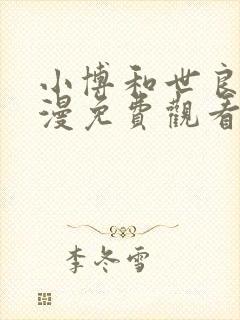 小博和世良
漫免費觀看
李冬雪